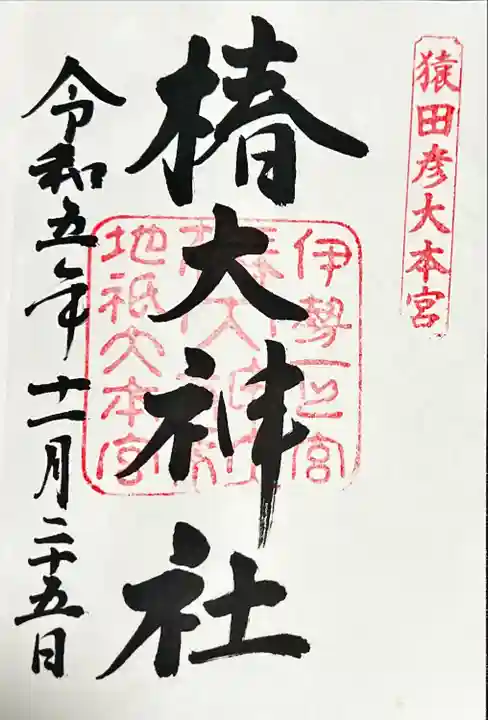 猿田彦大本宮
椿大神社
伊勢一之宮
椿大神社
地祇大本宮
令和五年十一月二十五日